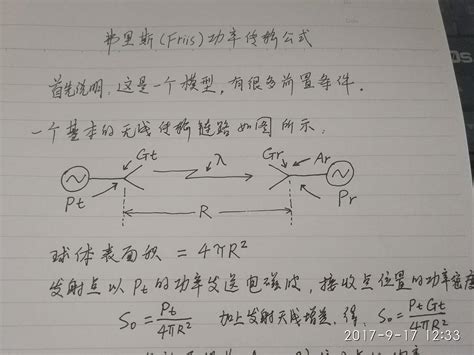 弗里斯(Friis)功率传输公式
首先说明,这是一个模型,有很多前置条件.
一个基本的无线传输链路如图所示:
Gt λ Gr Ar
Pt R Pr
球体表面积 = 4πR²
发射点以Pt的功率发送电磁波,接收点位置的功率密度
S₀ = Pt/4πR² 加上发射天线增益,得, S₀ = PtGt/4πR²
2017-9-17 12:33